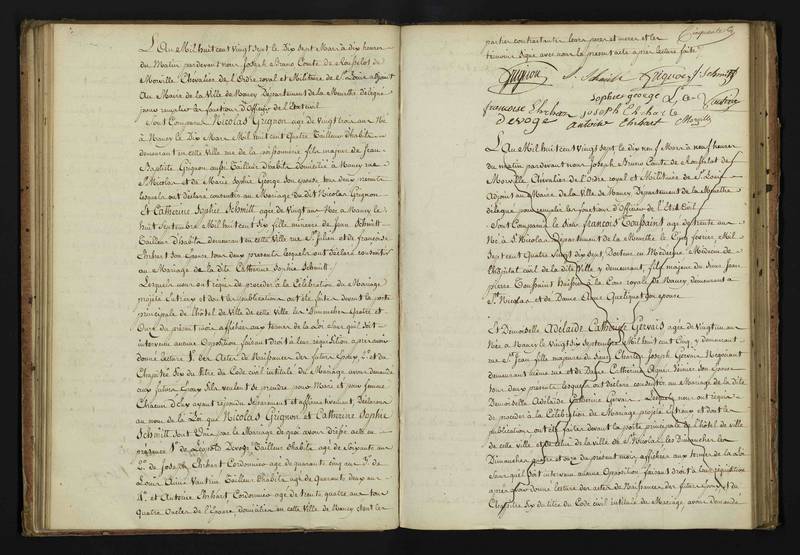 L'An Mil huit cent Vingt Sept le Dix Sept Mars à dix heures
du Matin pardevant nous Joseph Bruno Comte de Rousselot de
Morville Chevalier de l'Ordre royal et Militaire de St. Louis adjoint
au Maire de la Ville de Nancy Département de la Meurthe délégué
pour remplir les fonctions d'Officier de l'Etat civil
Sont Comparus Nicolas Grignon agé de Vingt trois ans Né
à Nancy le Dix Mars Mil huit cent Quatre Tailleur d'habits
demeurant en cette Ville rue de la poissonnerie fils majeur de Jean
Baptiste Grignon aussi Tailleur d'habits domicilié à Nancy rue
St. Nicolas et de Marie Sophie George son épouse tous deux présents
lesquels ont déclaré consentir au Mariage dudit Nicolas Grignon
Et Catherine Sophie Schmitt agée de Vingt ans Née à Nancy le
huit Septembre Mil huit cent Six fille mineure de Jean Schmitt
Tailleur d'habits demeurant en cette Ville rue St. Julien et de françoise
Ehrhart son Epouse tous deux présents lesquels ont déclaré consentir
au Mariage de la dite Catherine Sophie Schmitt
Lesquels nous ont requis de procéder à la Célébration du Mariage
projeté entre eux et dont les publications ont été faites devant la porte
principale de l'hôtel de Ville de cette ville les Dimanches quatre et
Onze du présent mois affichées aux termes de la Loi sans qu'il soit
intervenu aucune Opposition faisant droit à leur réquisition après avoir
donné lecture 1°. des Actes de Naissances des futurs Epoux, 2°. et du
Chapitre Six du titre du Code civil intitulé du Mariage avons demandé
aux futurs Epoux s'ils veulent se prendre pour Mari et pour femme
Chacun d'eux ayant répondu Séparément et affirmativement, Déclarons
au nom de la Loi que Nicolas Grignon et Catherine Sophie
Schmitt sont Unis par le Mariage de quoi avons dressé acte en
présence 1°. de Léopold Devoge Tailleur d'habits agé de Soixante ans
2°. de Joseph Ehrhart Cordonnier agé de quarante cinq ans 3°. de
Louis Vautrin Tailleur d'habits agé de Quarante deux ans
4°. et Antoine Ehrhart Cordonnier agé de trente quatre ans tous
quatre Oncles de l'Epouse, domiciliés en cette Ville de Nancy et ont les
Cinquante
parties contractantes leurs pères et mères et les
témoins Signé avec nous le présent acte après lecture faite
Grignon S. Schmitt Grignon J Schmitt
Sophie george L. Vautrin
françoise Ehrhart joseph Ehrhart
Devoge antoine Ehrhart Morville
L'An Mil huit cent Vingt sept le Dix neuf Mars à neuf heures
du matin pardevant nous Joseph Bruno Comte de Rousselot de
Morville Chevalier de l'Ordre royal et Militaire de St. Louis
Adjoint au Maire de la Ville de Nancy Département de la Meurthe
délégué pour remplir les fonctions d'Officier de l'Etat Civil
Sont Comparus le Sieur françois Toussaint agé de trente ans
Né à St. Nicolas Département de la Meurthe le Cinq février Mil
Sept cent Quatre Vingt dix Sept Docteur en Médecine Médecin de
l'hôpital civil de la dite Ville y demeurant, fils majeur du Sieur Jean
pierre Toussaint à la Cour royale de Nancy, demeurant à
St. Nicolas et de Dame son épouse
Et Demoiselle Adélaïde Catherine Gervais agée de Vingt un ans
Née à Nancy le Vingt six Septembre Mil huit cent Cinq y demeurant
rue St. Jean fille majeure du Sieur Charles Joseph Gervais Négociant
demeurant même rue et de Dame Catherine Agnès son Epouse
tous deux présents lesquels ont déclaré consentir au Mariage de la dite
Demoiselle Adélaïde Catherine Gervais. Lesquels nous ont requis
de procéder à la Célébration du Mariage projeté entre eux et dont les
publications ont été faites devant la porte principale de l'hôtel de ville
de cette ville et celui de la ville de St. Nicolas, les Dimanches les
Dimanches quatre et onze du présent mois, affichées aux termes de la loi
sans qu'il soit intervenu aucune Opposition faisant droit à leur réquisition
après avoir donné lecture des actes de Naissances des futurs Epoux et du
Chapitre Six du titre du Code civil intitulé du Mariage, avons demandé